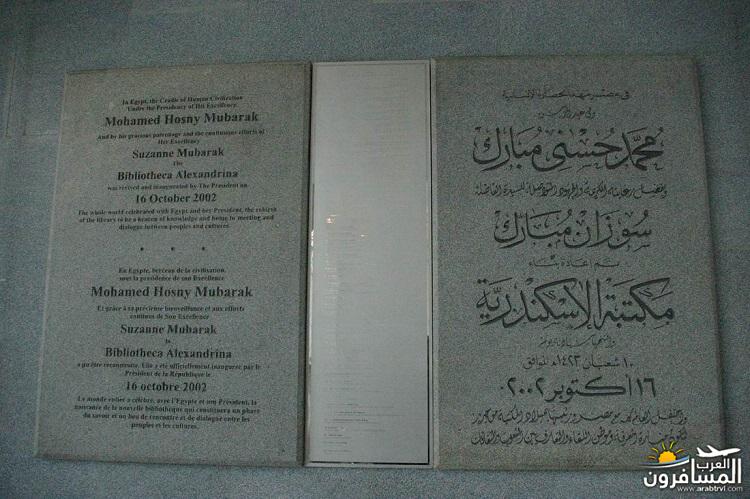 In Egypt, the Cradle of Human Civilization
Under the Presidency of His Excellency
Mohamed Hosny Mubarak
And by his gracious patronage and the continuous efforts of
Her Excellency
Suzanne Mubarak
The
Bibliotheca Alexandrina
was revived and inaugurated by The President on
16 October 2002
The whole world celebrated with Egypt and her President, the rebirth
of the library to be a beacon of knowledge and home to meeting and
dialogue between peoples and cultures.
* * *
En Egypte, berceau de la civilisation
sous la présidence de son Excellence
Mohamed Hosny Mubarak
Et grâce à sa précieuse bienveillance et aux efforts
continus de Son Excellence
Suzanne Mubarak
la
Bibliotheca Alexandrina
a pu être reconstruite. Elle a été officiellement inaugurée par le
Président de la République le
16 octobre 2002
Le monde entier a célébré, avec l'Egypte et son Président, la
naissance de la nouvelle bibliothèque qui constituera un phare
du savoir et un lieu de rencontre et de dialogue entre les
peuples et les cultures.
في مصر مهد الحضارة الإنسانية
وفي عهد الرئيس
محمد حسني مبارك
وبفضل رعايته الكريمة والجهود المتواصلة للسيدة الفاضلة
سوزان مبارك
تم إعادة بناء
مكتبة الإسكندرية
١٠ شعبان ١٤٢٣هـ الموافق
١٦ أكتوبر ٢٠٠٢
العرب
المسافرون
www.arabtrvl.com